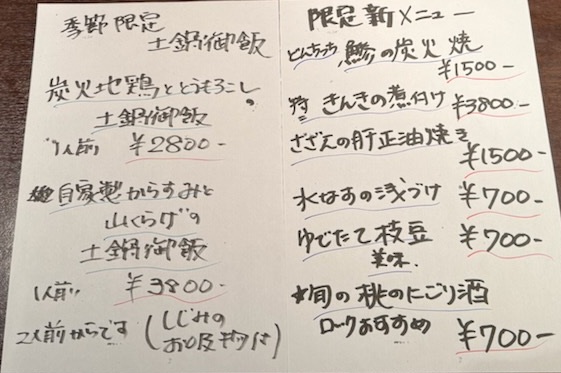 季節限定
土鍋御飯
炭火地鶏ととうもろこし
土鍋御飯
1人前 ¥2800-
自家製からすみと
山くらげの
土鍋御飯
1人前 ¥3800-
2人前からです (しじみの
お吸モツ付)
限定新メニュー
どんちっち 鯵の炭火焼
¥1500-
特 きんきの煮付け ¥3800-
さざえの肝正油焼き
¥1500-
水なすの浅づけ ¥700-
ゆでたて枝豆 ¥700-
美味
★旬の桃のにごり酒
ロックおすすめ ¥700-